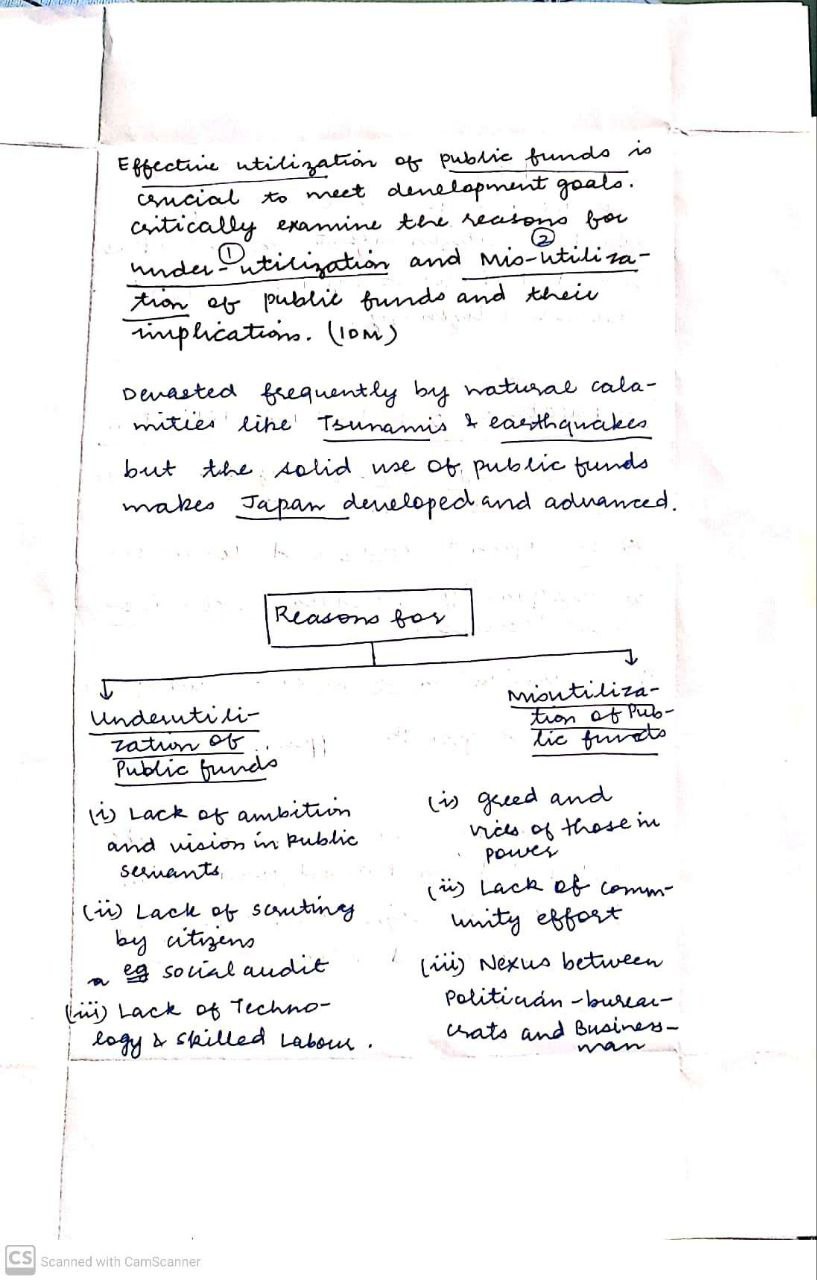 Effective utilization of public funds is
crucial to meet development goals.
critically examine the reasons for
① ②
under-utilization and Mis-utiliza-
tion of public funds and their
implications. (10M)
Devasted frequently by natural cala-
mities like Tsunamis & earthquakes
but the solid use of public funds
makes Japan developed and advanced.
Reasons for
Underutili-
zation of
Public funds
(i) Lack of ambition
and vision in public
servants,
(ii) Lack of scrutiny
by citizens
eg social audit
(iii) Lack of Techno-
logy & skilled Labour.
Misutiliza-
tion of Pub-
lic funds
(i) greed and
vices of those in
power
(ii) Lack of comm-
unity effort
(iii) Nexus between
Politician-bureau-
crats and Business-
man
CS Scanned with CamScanner